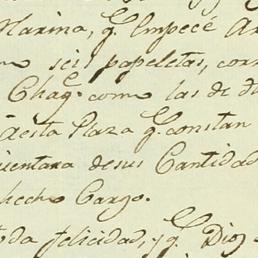 Marina, q. Empecé
seis papeletas,
Chaq. como las de
Aesta Plaza q. constan
desus Cantidad
hecho Cargo.
felicidad, y q. Dios